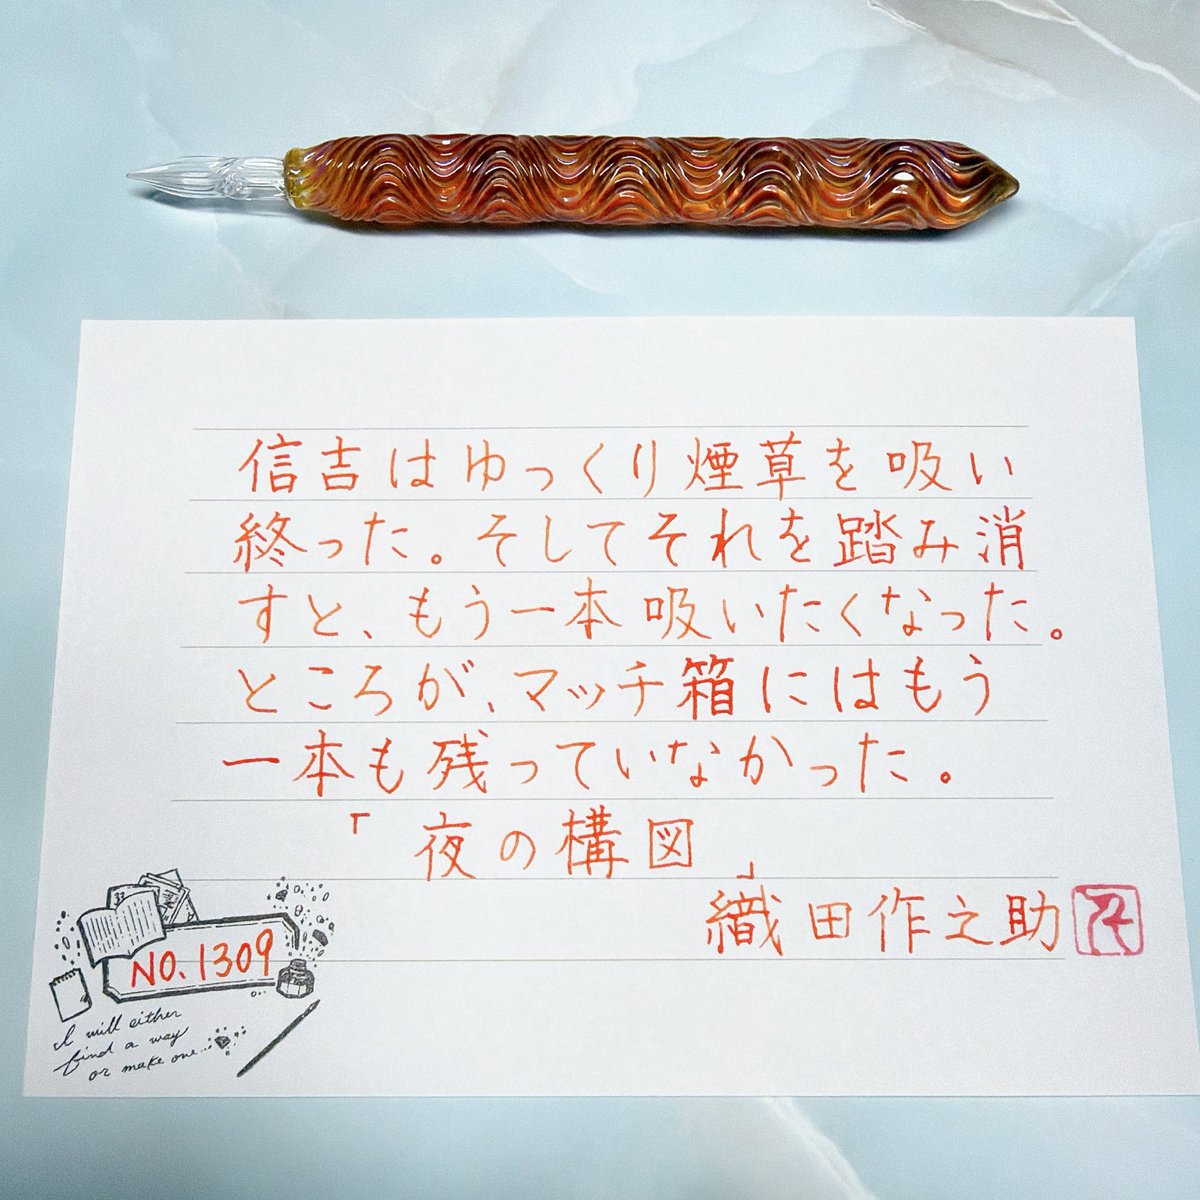 信吉はゆっくり煙草を吸い
終った。そしてそれを踏み消
すと、もう一本吸いたくなった。
ところが、マッチ箱にはもう
一本も残っていなかった。
「夜の構図」
織田作之助
NO.1309
I will either
find a way
or make one...